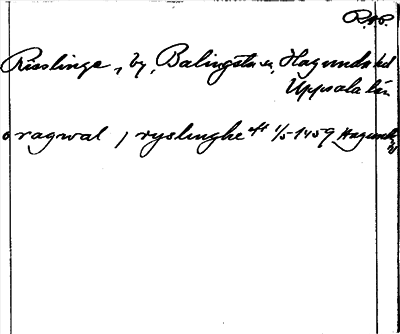 Risslinge, by, Balingsta sn, Hagunda hd
Uppsala län
ragwal j ryslinghe 1/5 1459 Hagunda